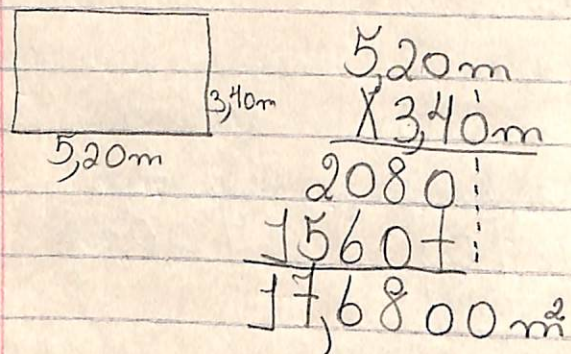 3,40m
5,20m
5,20m
X3,40m
2080
1560+
17,6800m²